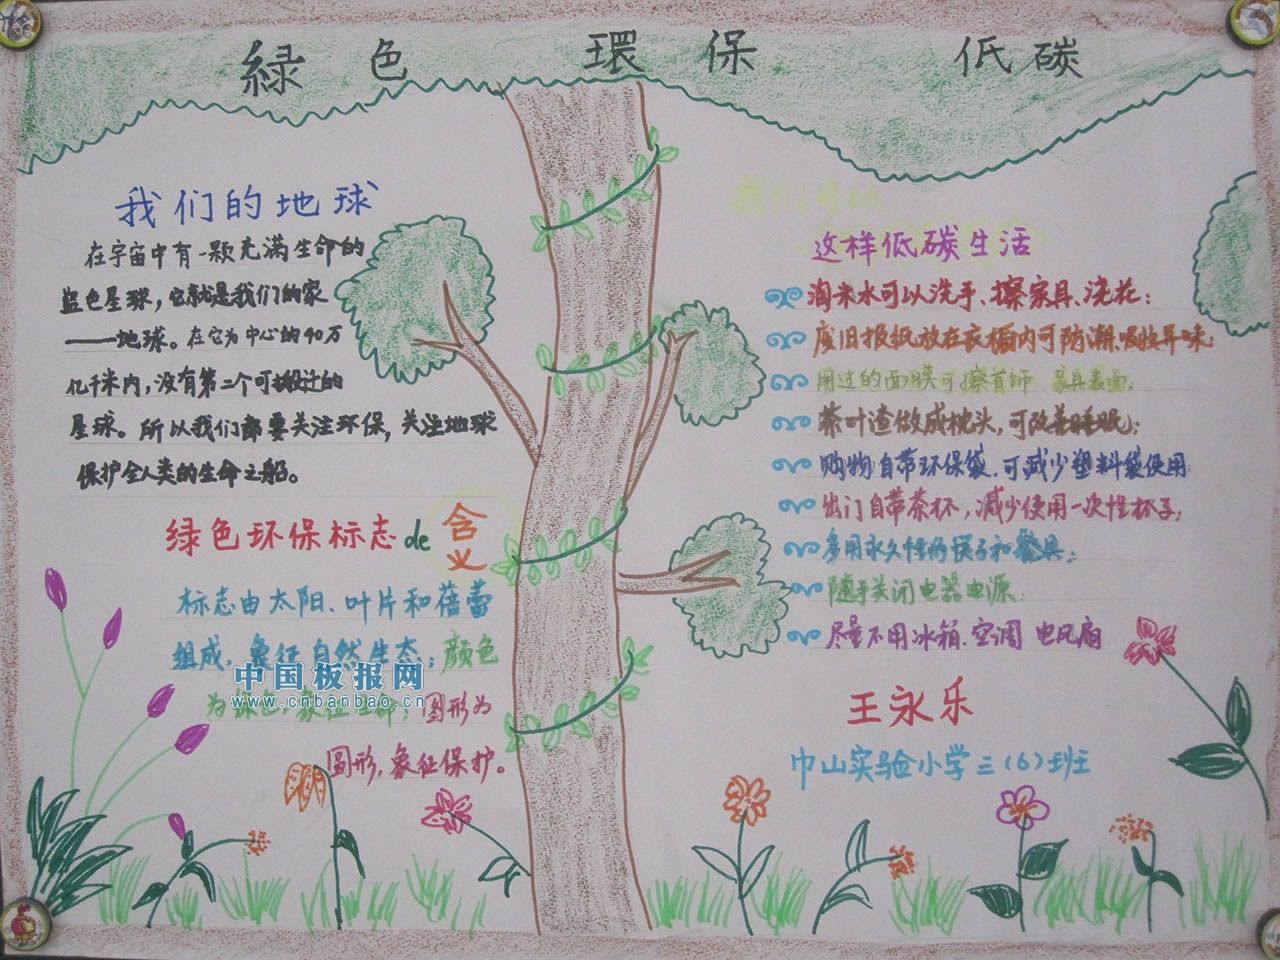 綠色 環保 低碳
我们的地球
在宇宙中有一颗充满生命的
蓝色星球，它就是我们的家
——地球。在它为中心的40万
亿千米内，没有第二个可搬迁的
星球。所以我们都要关注环保，关注地球
保护全人类的生命之船。
绿色环保标志de含义
标志由太阳、叶片和蓓蕾
组成，象征自然生态；颜色
为绿色，象征生命；图形为
圆形，象征保护。
中国板报网
www.cnbanbao.cn
这样低碳生活
淘米水可以洗手、擦家具、浇花；
废旧报纸放在衣橱内可防潮、吸收异味；
用过的面膜可擦首饰 家具表面；
茶叶渣做成枕头，可改善睡眠；
购物自带环保袋，可减少塑料袋使用
出门自带茶杯，减少使用一次性杯子；
多用永久性的筷子和餐具；
随手关闭电器电源；
尽量不用冰箱、空调 电风扇
王永乐
巾山实验小学三（6）班